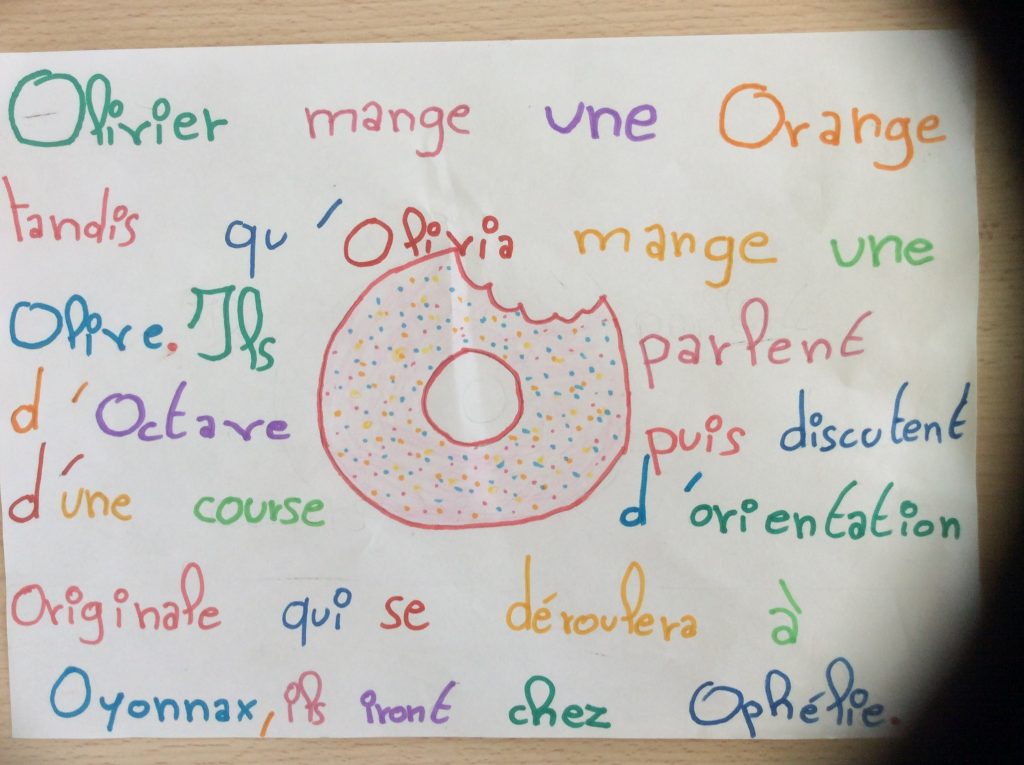 Olivier mange une Orange
tandis qu'Olivia mange une
Olive. Ils parlent
d'Octave puis discutent
d'une course d'orientation
Originale qui se déroulera à
Oyonnax, ils iront chez Ophélie.